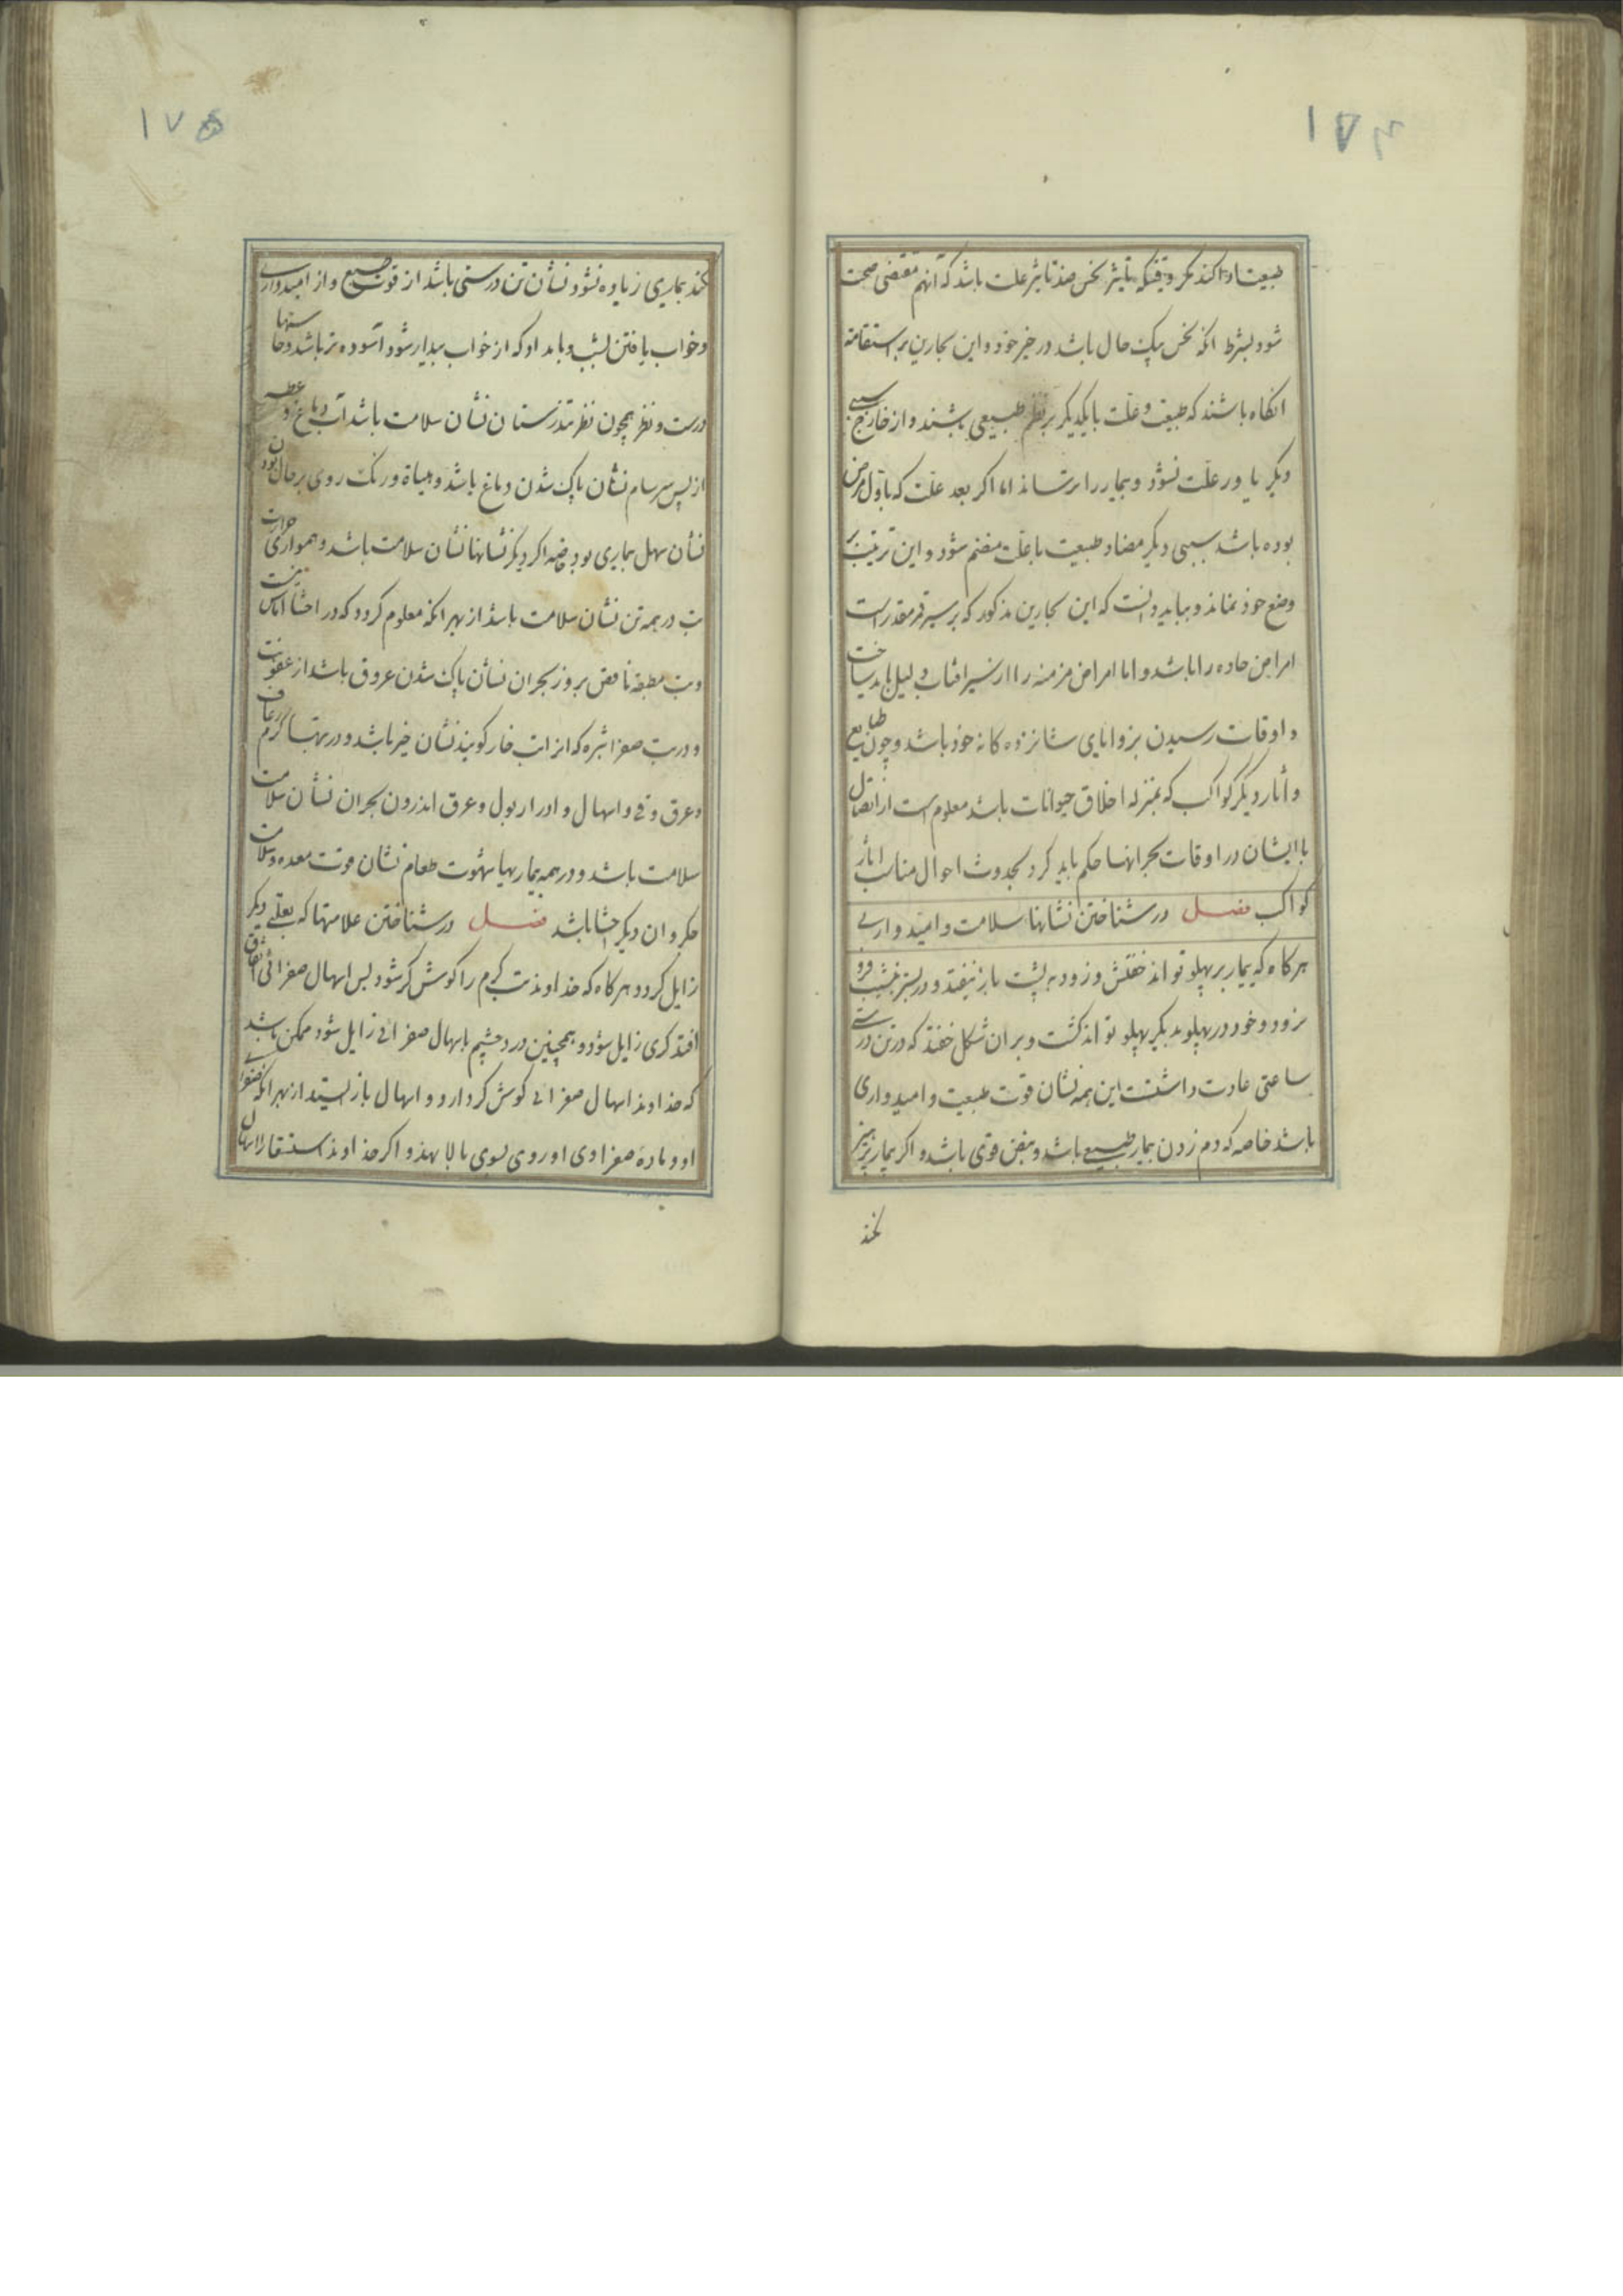 ۱۷۴
طبیعت او اکند مکر وقتیکه تاثیر نحس ضد تاثیر علت باشد که آنهم مقتضی صحت
شود بشرط انکه نحس نیک حال باشد در خیر خود و این بحارین بر استقامة
انکاه باشند که طبیعت و علت بایکدیکر بر نظم طبیعی باشند و از خارج سببی
دیکر یاور علت نشود و بیمار را برنساند اما اکر بعد علت که باول مرض
بوده باشد سببی دیکر مضاد طبیعت باعلت منضم شود و این ترتیب بر
وضع خود نماند و بباید دانست که این بحارین مذکور که بر سیر قمر مقدر است
امراض حاده را باشد و اما امراض مزمنه را از سیر افتاب دلیل باید ساخت
و اوقات رسیدن بزوایای شانزده کانه خود باشد و چون طبایع
و آثار دیکر کواکب که بمنزله اخلاق حیوانات باشد معلوم است از اتصال
با ایشان در اوقات بحرانها حکم باید کرد بحدوث احوال مناسب آثار
کواکب فصل در شناختن نشانها سلامت و امیدواری
هرکاه که بیمار بر پهلو تواند خفتش و زود به پشت باز نیفتد و در بستر بنشیب فرو
نرود و خود در پهلو بدیکر پهلو تواند کشت و بران شکل خفتد که در تن درستی
ساعتی عادت داشتست این همه نشان قوت طبیعت و امیدواری
باشد خاصه که دم زدن بیمار طبیعی باشد و نبض قوی باشد و اکر بیمار پرهیز
نکند
۱۷۵
نکند بیماری زیاده نشود نشان تن درستی باشد از قوت طبیع و از امیدواری
و خواب یافتن بشب و بامداد که از خواب بیدار شود آسوده تر باشد و حاستها
درست و نظر همچون نظر تندرستان نشان سلامت باشد آب دماغ و عطسه
از پس سرسام نشان پاک شدن دماغ باشد و هیاة و رنک روی بر حال بودن
نشان سهل بیماری بود خاصه اکر دیکر نشانها نشان سلامت باشد و همواری حرارت
تب در همه تن نشان سلامت باشد از بهر انکه معلوم کردد که در احشا اماس نیست
و تب مطبقه نافض بروز بحران نشان پاک شدن عروق باشد از عفونت
و در تب صفرا بثره که از اتب خار کویند نشان خیر باشد و در تبها کرم رعاف
و عرق و قی و اسهال و ادرار بول و عرق اندرون بحران نشان سلامت
سلامت باشد و در همه بیماریها شهوت طعام نشان قوت معده و سلامت
جکر و ان دیکر احشا باشد فصل در شناختن علامتها که بعلتی دیکر
زایل کردد هرکاه که خداوند تب کرم را کوش کر شود پس اسهال صفرائی اتفاق
افتد کری زایل شود و همچنین درد چشم باسهال صفرائی زایل شود ممکن باشد
که خداوند اسهال صفرائی کوش کر دارد و اسهال باز ایستد از بهر انکه صفرائی
او و ماده صفراوی او روی بسوی بالا نهد و اکر خداوند استسقا را اسهال